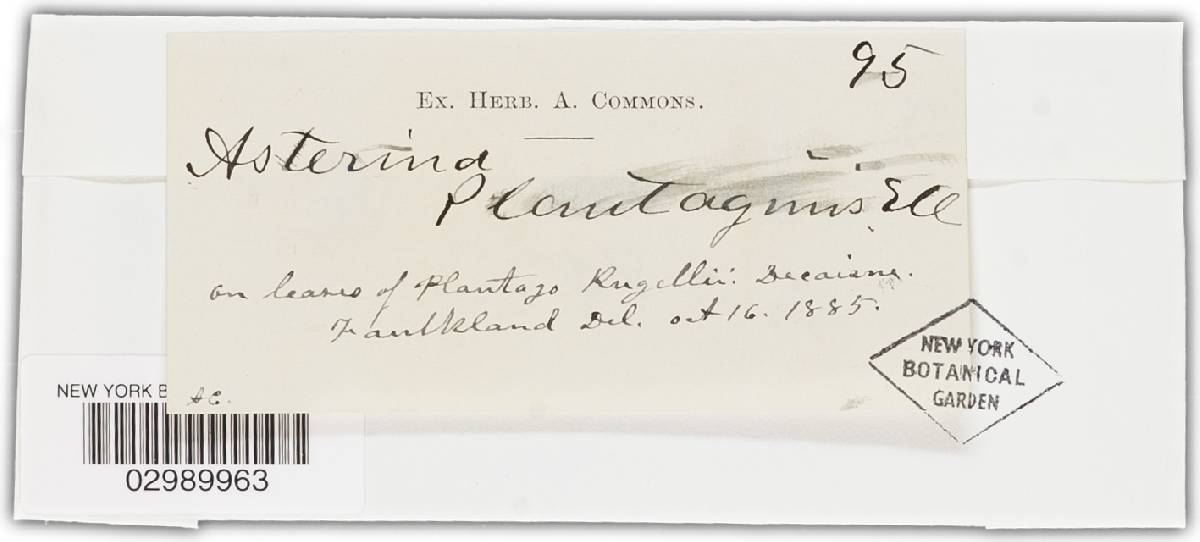 95
Ex. Herb. A. Commons.
Asterina
Plantaginis Ell
on leaves of Plantago Rugellii: Decaisne.
Faulkland Del. oct 16. 1885.
A C.
NEW YORK
BOTANICAL
GARDEN
NEW YORK B
02989963